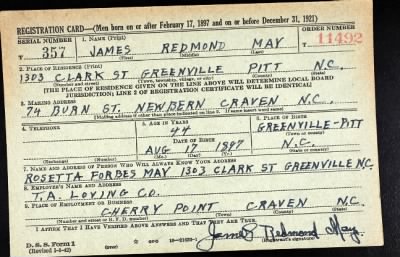 REGISTRATION CARD—(Men born on or after February 17, 1897 and on or before December 31, 1921)
SERIAL NUMBER 1. NAME (Print) ORDER NUMBER
T 357 JAMES REDMOND MAY T 11492
(First) (Middle) (Last)
2. PLACE OF RESIDENCE (Print)
1303 CLARK ST GREENVILLE PITT N.C.
(Number and street) (Town, township, village, or city) (County) (State)
[THE PLACE OF RESIDENCE GIVEN ON THE LINE ABOVE WILL DETERMINE LOCAL BOARD
JURISDICTION; LINE 2 OF REGISTRATION CERTIFICATE WILL BE IDENTICAL]
3. MAILING ADDRESS
74 BURN ST. NEWBERN CRAVEN N.C.
[Mailing address if other than place indicated on line 2. If same insert word same]
4. TELEPHONE 5. AGE IN YEARS 6. PLACE OF BIRTH
44 GREENVILLE-PITT
DATE OF BIRTH (Town or county)
AUG 17 1897 N.C.
(Exchange) (Number) (Mo.) (Day) (Yr.) (State or country)
7. NAME AND ADDRESS OF PERSON WHO WILL ALWAYS KNOW YOUR ADDRESS
ROSETTA FORBES MAY 1303 CLARK ST GREENVILLE N.C.
8. EMPLOYER'S NAME AND ADDRESS
T.A. LOVING CO.
9. PLACE OF EMPLOYMENT OR BUSINESS
CHERRY POINT CRAVEN N.C.
(Number and street or R. F. D. number) (Town) (County) (State)
I AFFIRM THAT I HAVE VERIFIED ABOVE ANSWERS AND THAT THEY ARE TRUE.
D. S. S. Form 1
(Revised 1-1-42) James Redmond May
(Registrant's signature)